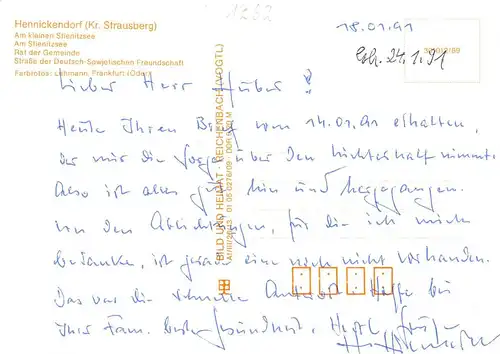 1262
18.01.91
Erh. 24.1.91
Hennickendorf (Kr. Strausberg)
Am kleinen Stienitzsee
Am Stienitzsee
Rat der Gemeinde
Straße der Deutsch-Sowjetischen Freundschaft
Farbfotos: Lehmann, Frankfurt (Oder)
Lieber Herr Huber!
Heute Ihren Brief vom 14.01.91 erhalten,
der mir die Sorge über den
Also ist alles gut hin und hergegangen.
Von den Ablichtungen, für die ich mich
bedanke, ist gerade eine noch nicht vorhanden.
Das war die schnelle Antwort. Hoffe bei
Ihrer Fam. beste Gesundheit. Herzl. Grüße
BILD UND HEIMAT REICHENBACH (VOGTL)